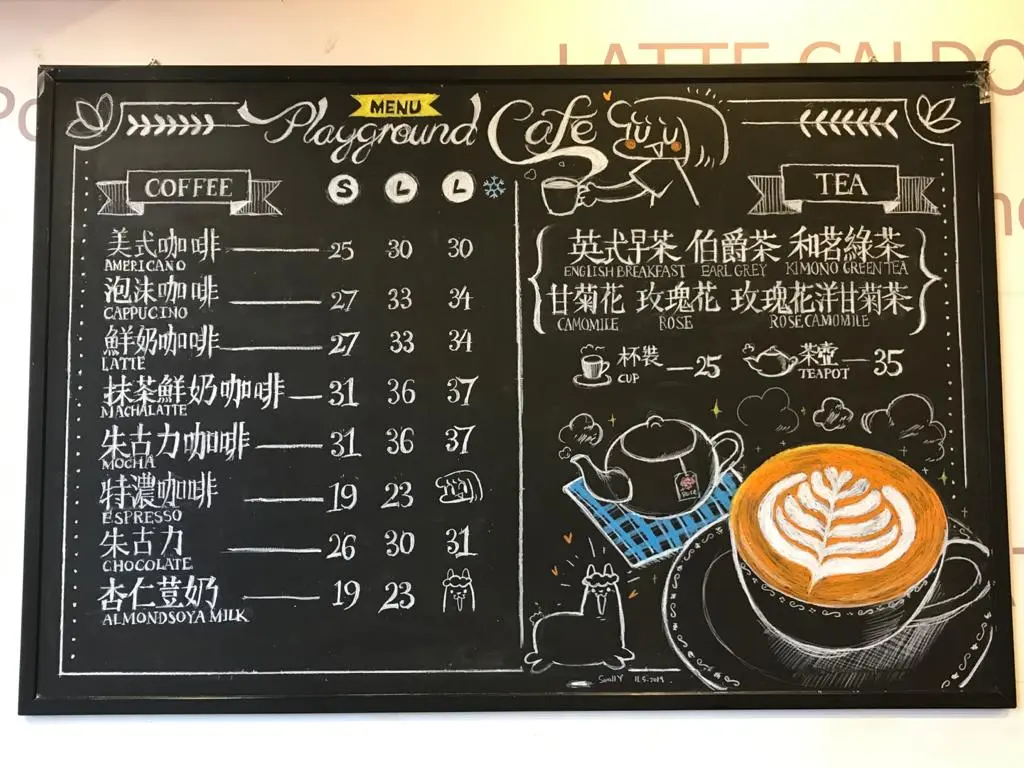 LATTE CALDO
MENU
Playground Café
COFFEE S L L
美式咖啡 25 30 30
AMERICANO
泡沫咖啡 27 33 34
CAPPUCINO
鮮奶咖啡 27 33 34
LATTE
抹茶鮮奶咖啡 31 36 37
MACHALATTE
朱古力咖啡 31 36 37
MOCHA
特濃咖啡 19 23
ESPRESSO
朱古力 26 30 31
CHOCOLATE
杏仁荳奶 19 23
ALMONDSOYA MILK
TEA
英式早茶 伯爵茶 和茗綠茶
ENGLISH BREAKFAST EARL GREY KIMONO GREEN TEA
甘菊花 玫瑰花 玫瑰花洋甘菊茶
CAMOMILE ROSE ROSE CAMOMILE
杯裝 25 茶壺 35
CUP TEAPOT
11.5.2019